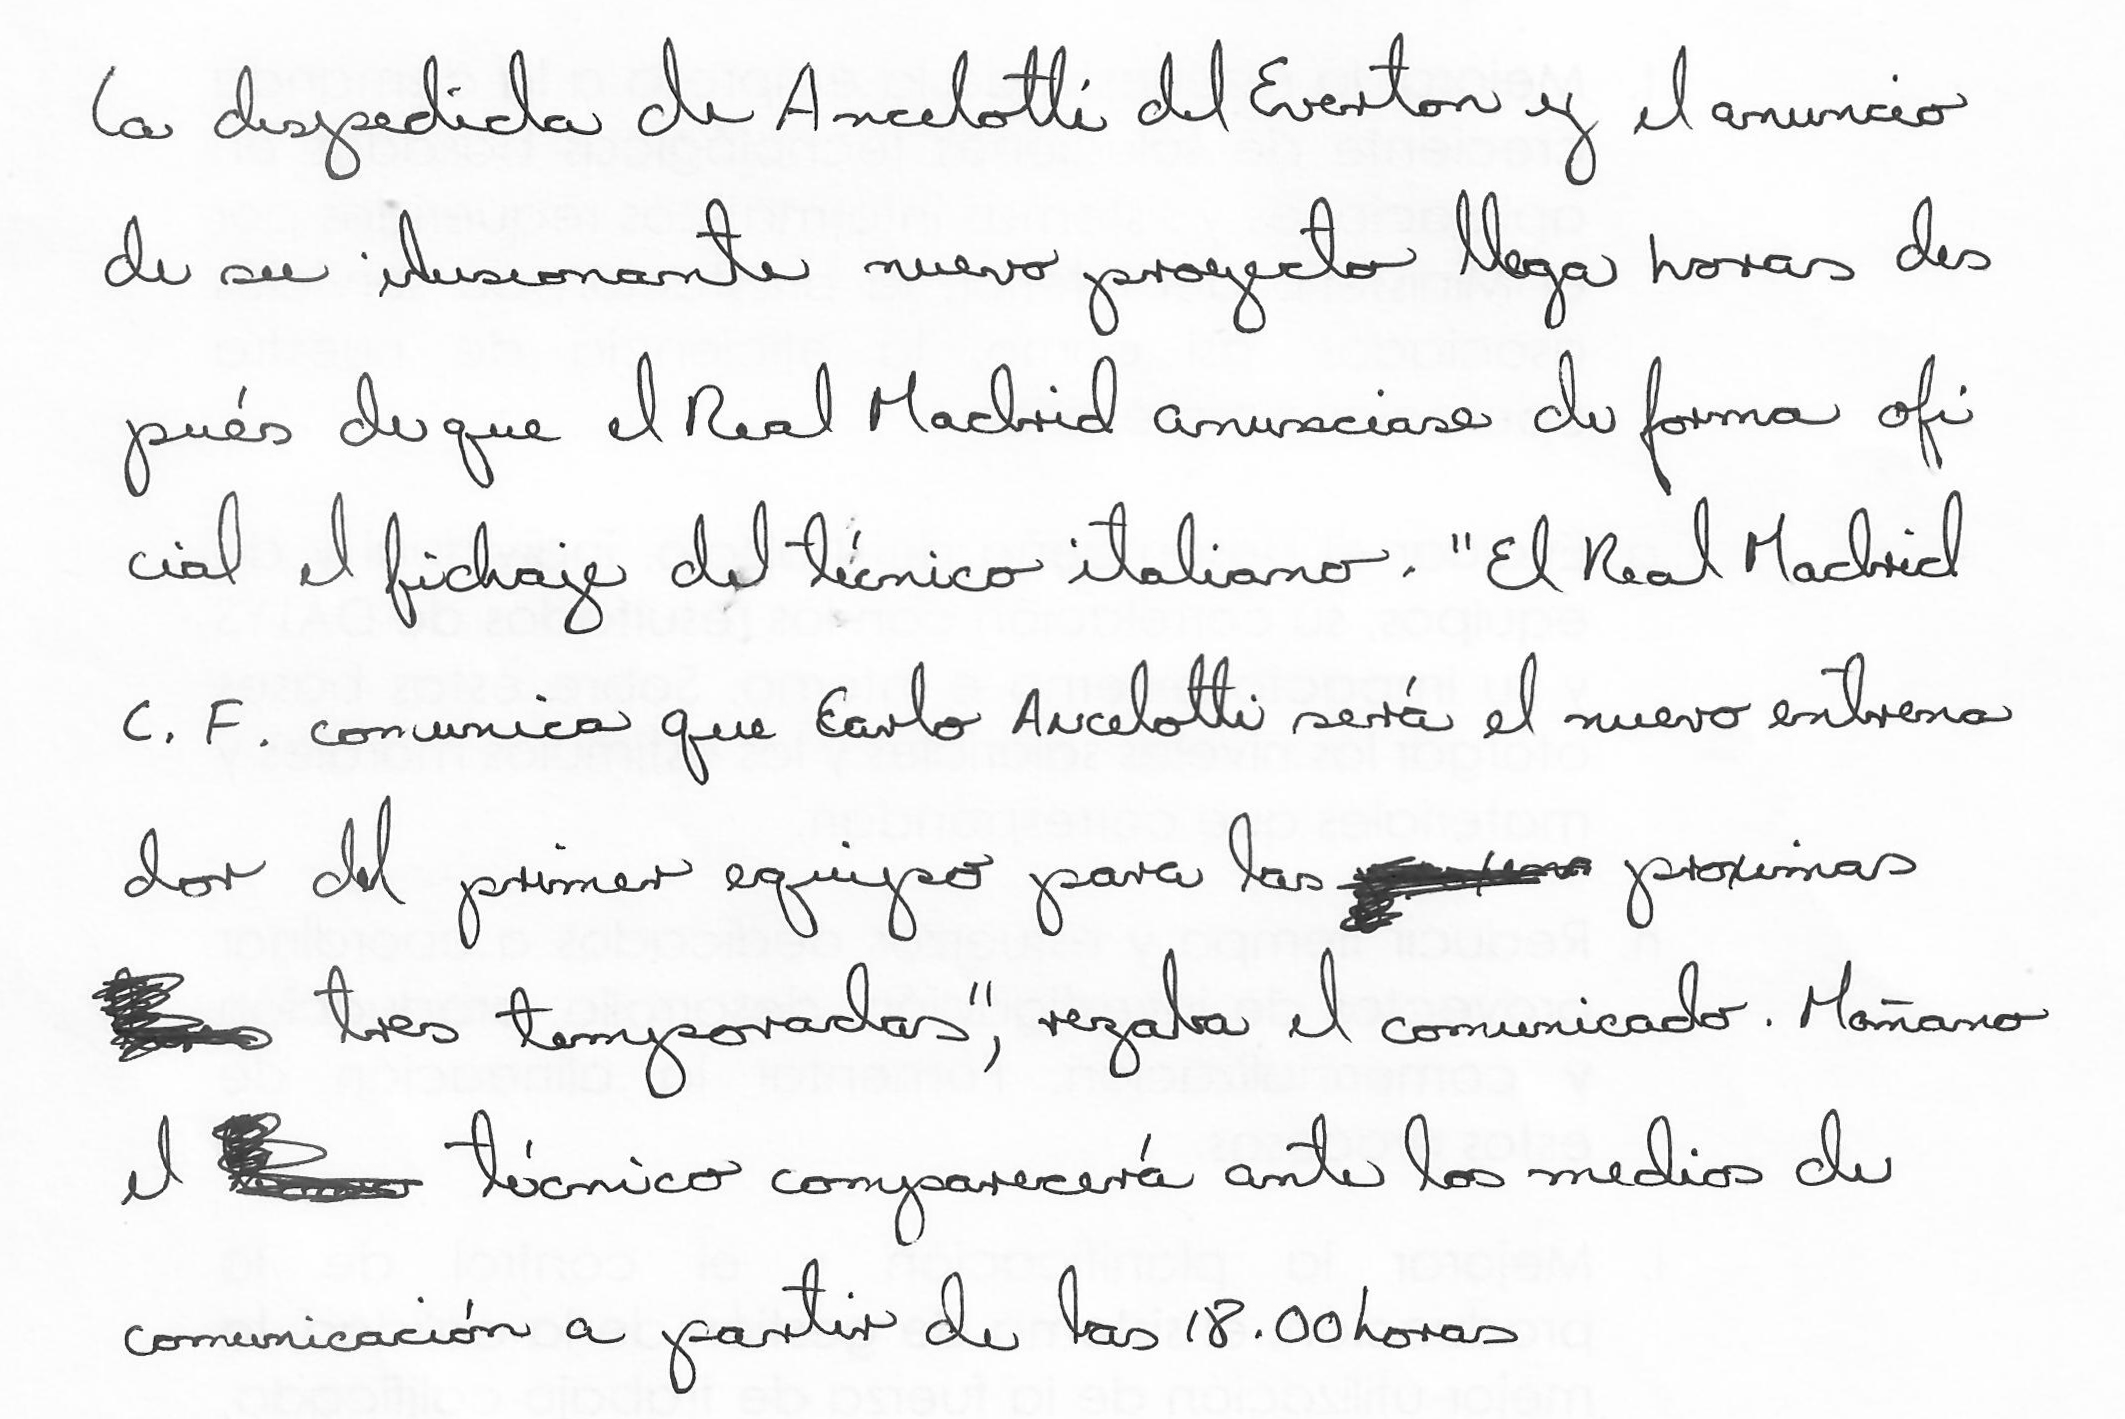 La despedida de Ancelotti del Everton y el anuncio
de su ilusionante nuevo proyecto llega horas des
pués de que el Real Madrid anunciase de forma ofi
cial el fichaje del técnico italiano. "El Real Madrid
C. F. comunica que Carlo Ancelotti será el nuevo entrena
dor del primer equipo para las proximas
tres temporadas", rezaba el comunicado. Mañana
el técnico comparecerá ante los medios de
comunicación a partir de las 18.00 horas